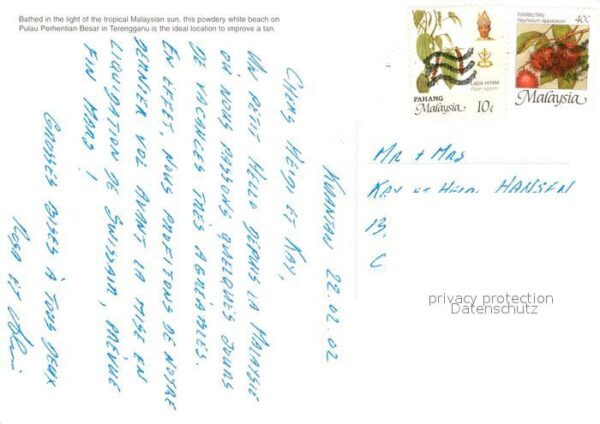 Bathed in the light of the tropical Malaysian sun, this powdery white beach on
Pulau Perhentian Besar in Terengganu is the ideal location to improve a tan.
RAMBUTAN
Nephelium lappaceum
40¢
Malaysia
LADA HITAM
Piper nigrum
PAHANG
Malaysia
10¢
KUANTAN 22.02.02
CHERS HEIDI ET KAY,
UN PETIT HELLO DEPUIS LA MALAYSIE
OÙ NOUS PASSONS QUELQUES JOURS
DE VACANCES TRÈS AGRÉABLES.
EN EFFET, NOUS PROFITONS DE NOTRE
DERNIER VOL AVANT LA MISE EN
LIQUIDATION DE SWISSAIR, PRÉVUE
FIN MARS !
GROSSES BISES À TOUS DEUX
ET
MR + MRS
KAY HANSEN
13,
C
privacy protection
Datenschutz